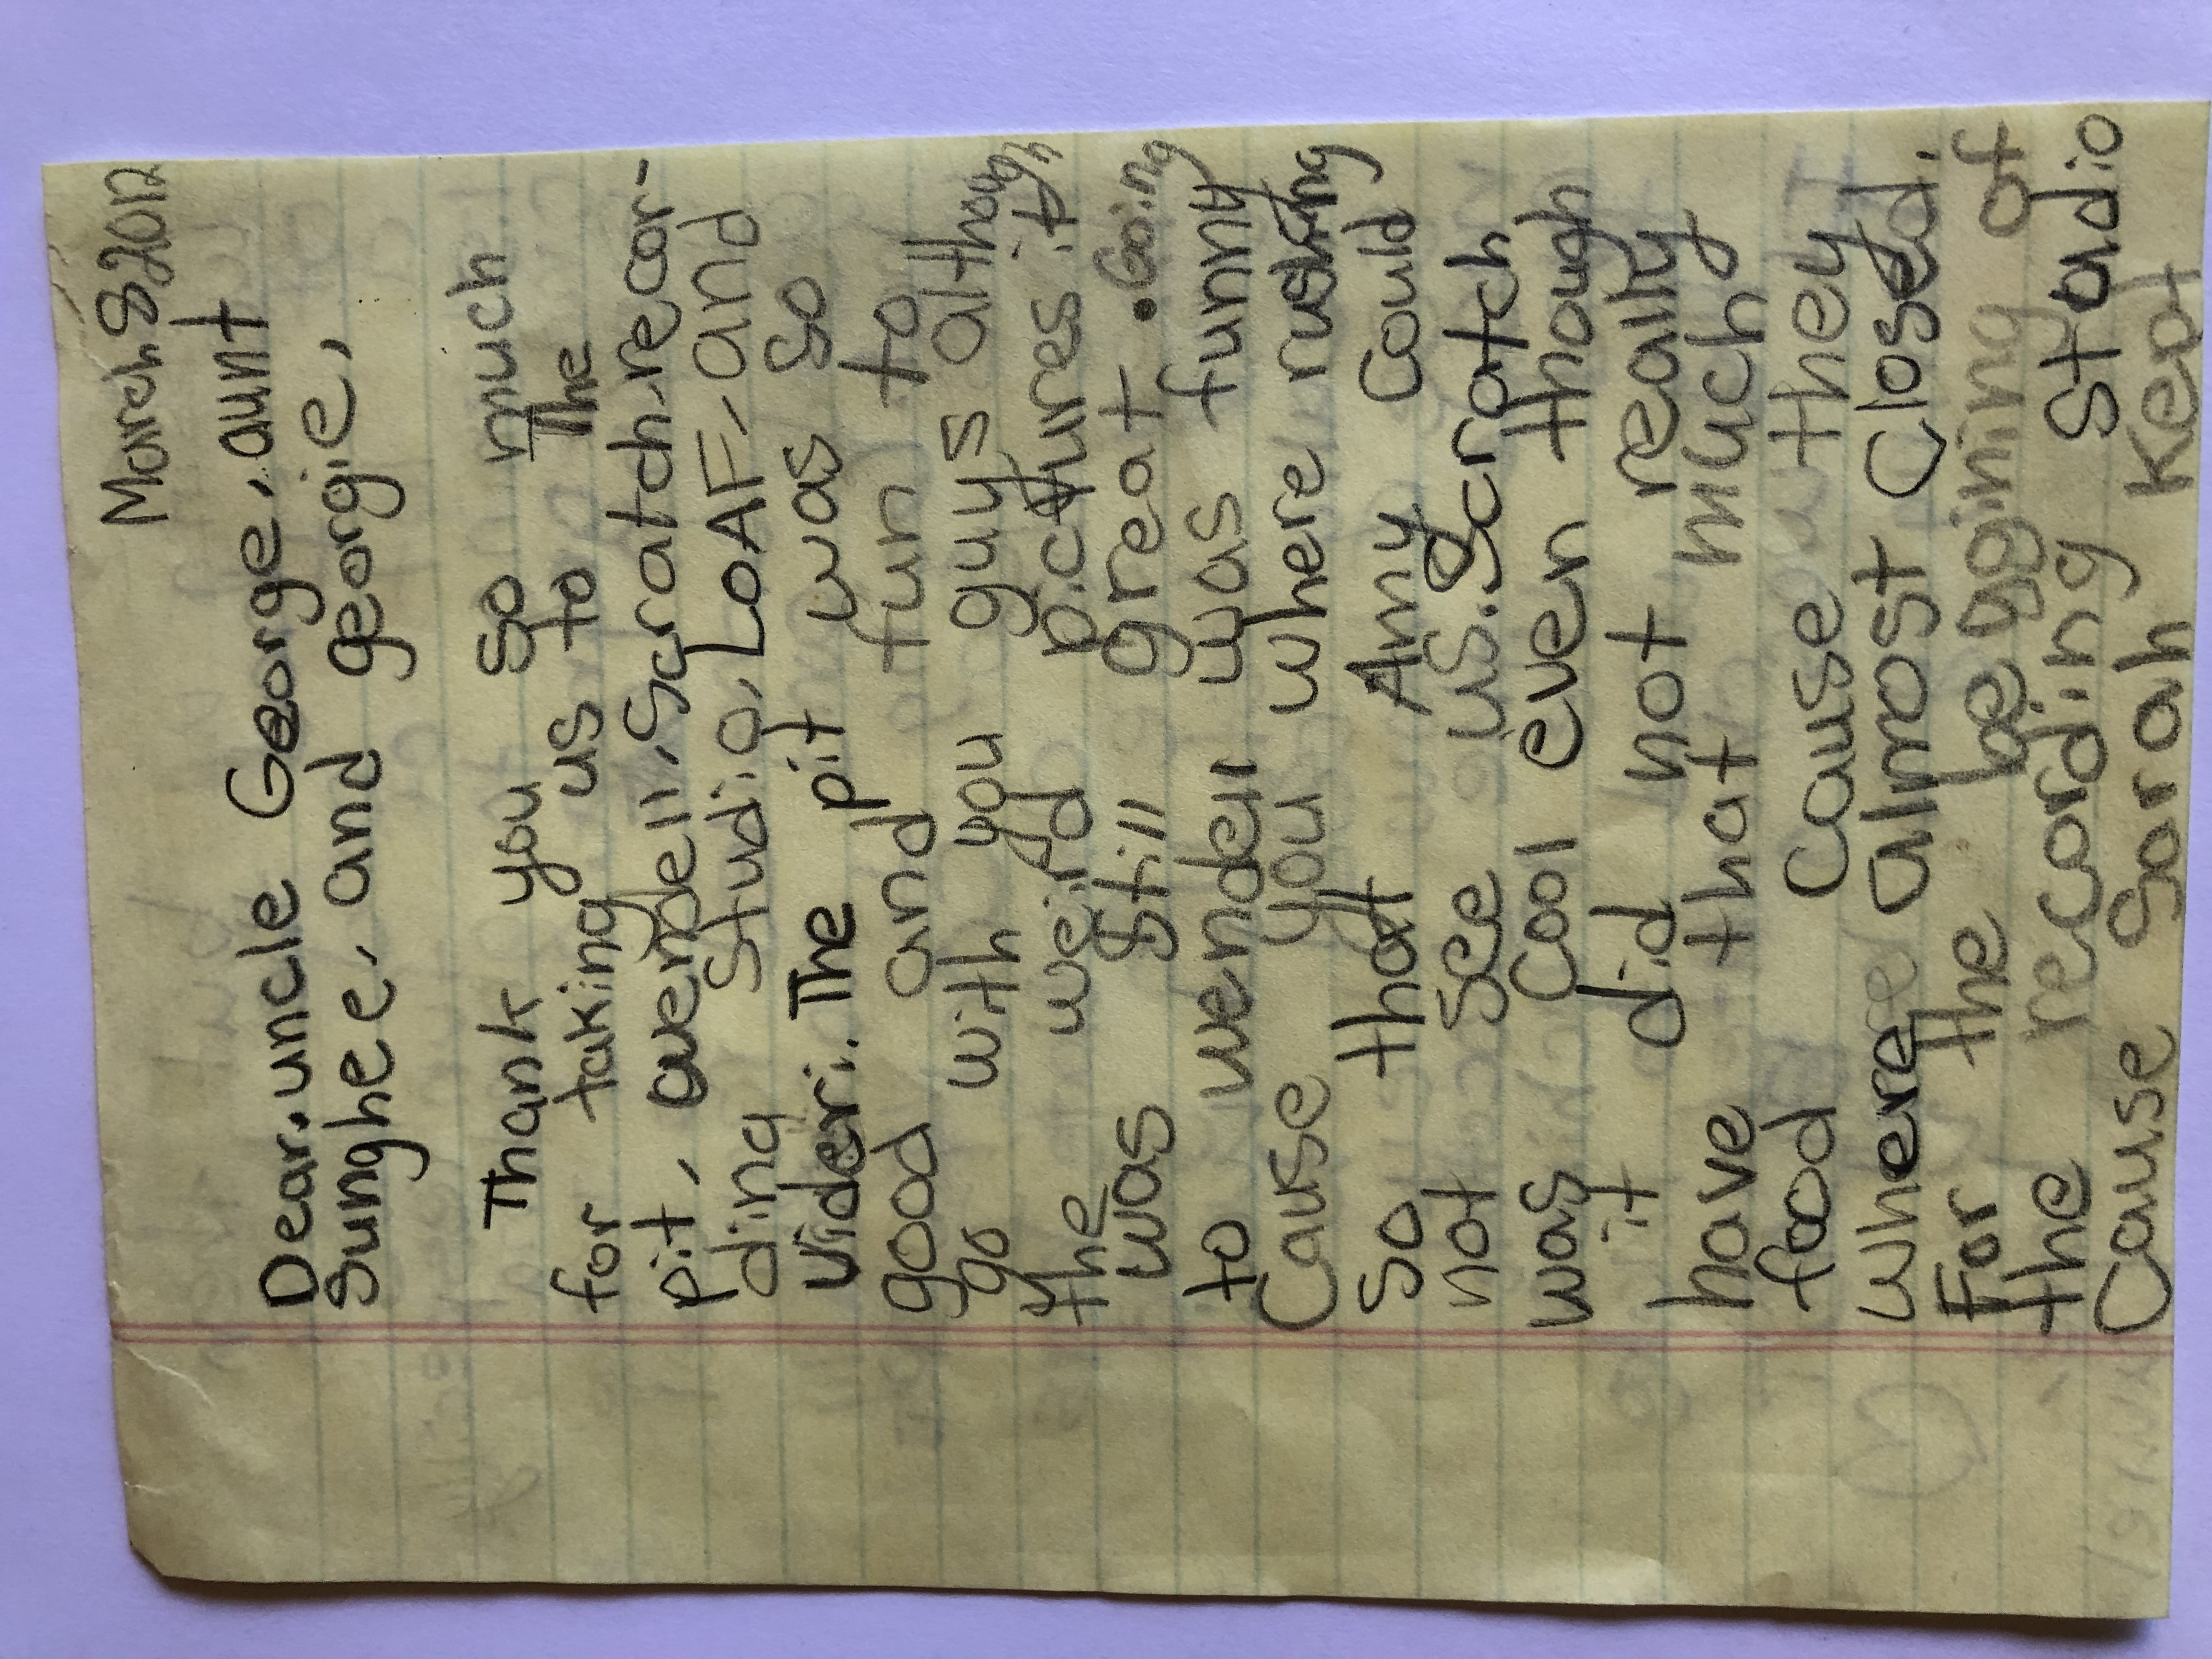 March 8 2012
Dear. uncle George, aunt
Sunghee, and georgie,
Thank you so much
for taking us to The
pit, wendell, Scratch, recor-
ding Studio, LOAF, and
Videri. The pit was so
good and fun to
go with you guys although
the weird pictures it
was still great. Going
to wendell was funny
Cause you where rushing
so that Amy Could
not see us. Scratch
was Cool even though
it did not really
have that much
food Cause they
where almost Closed.
For the beggining of
the recording Studio
Cause Sarah Kept